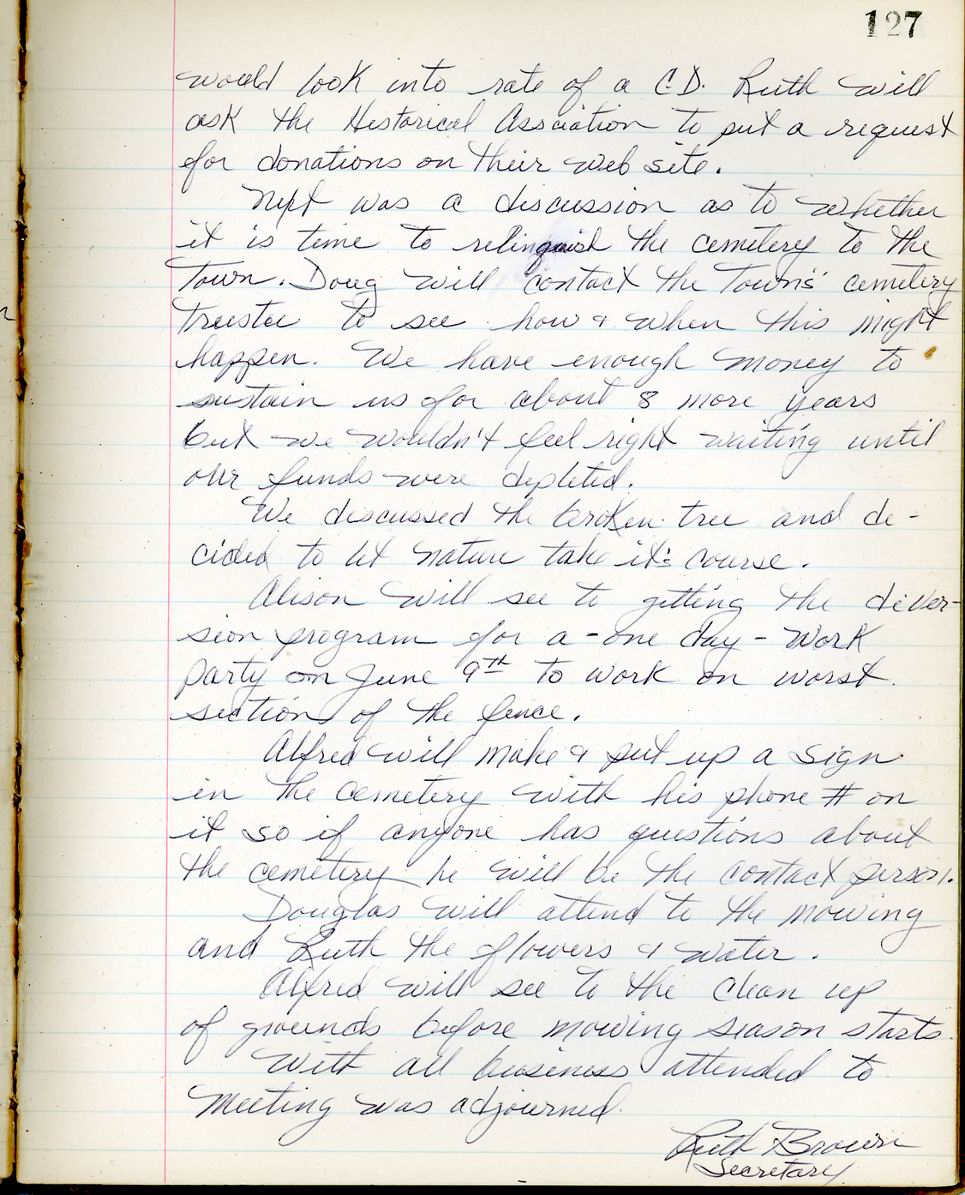 127
would look into rate of a C.D. Ruth will
ask the Historical Association to put a request
for donations on their web site.
Next was a discussion as to whether
it is time to relinquish the cemetery to the
Town. Doug will contact the Towns' cemetery
trustee to see how & when this might
happen. We have enough money to
sustain us for about 8 more years
but we wouldn't feel right waiting until
our funds were depleted.
We discussed the broken tree and de-
cided to let nature take it's course.
Alison will see to getting the diver-
sion program for a - one day - work
party on June 9th to work on worst
section of the fence.
Alfred will make & put up a sign
in the cemetery with his phone # on
it so if anyone has questions about
the cemetery he will be the contact person.
Douglas will attend to the mowing
and Ruth the flowers & water.
Alfred will see to the clean up
of grounds before mowing season starts.
With all business attended to
meeting was adjourned.
Ruth Brown
Secretary